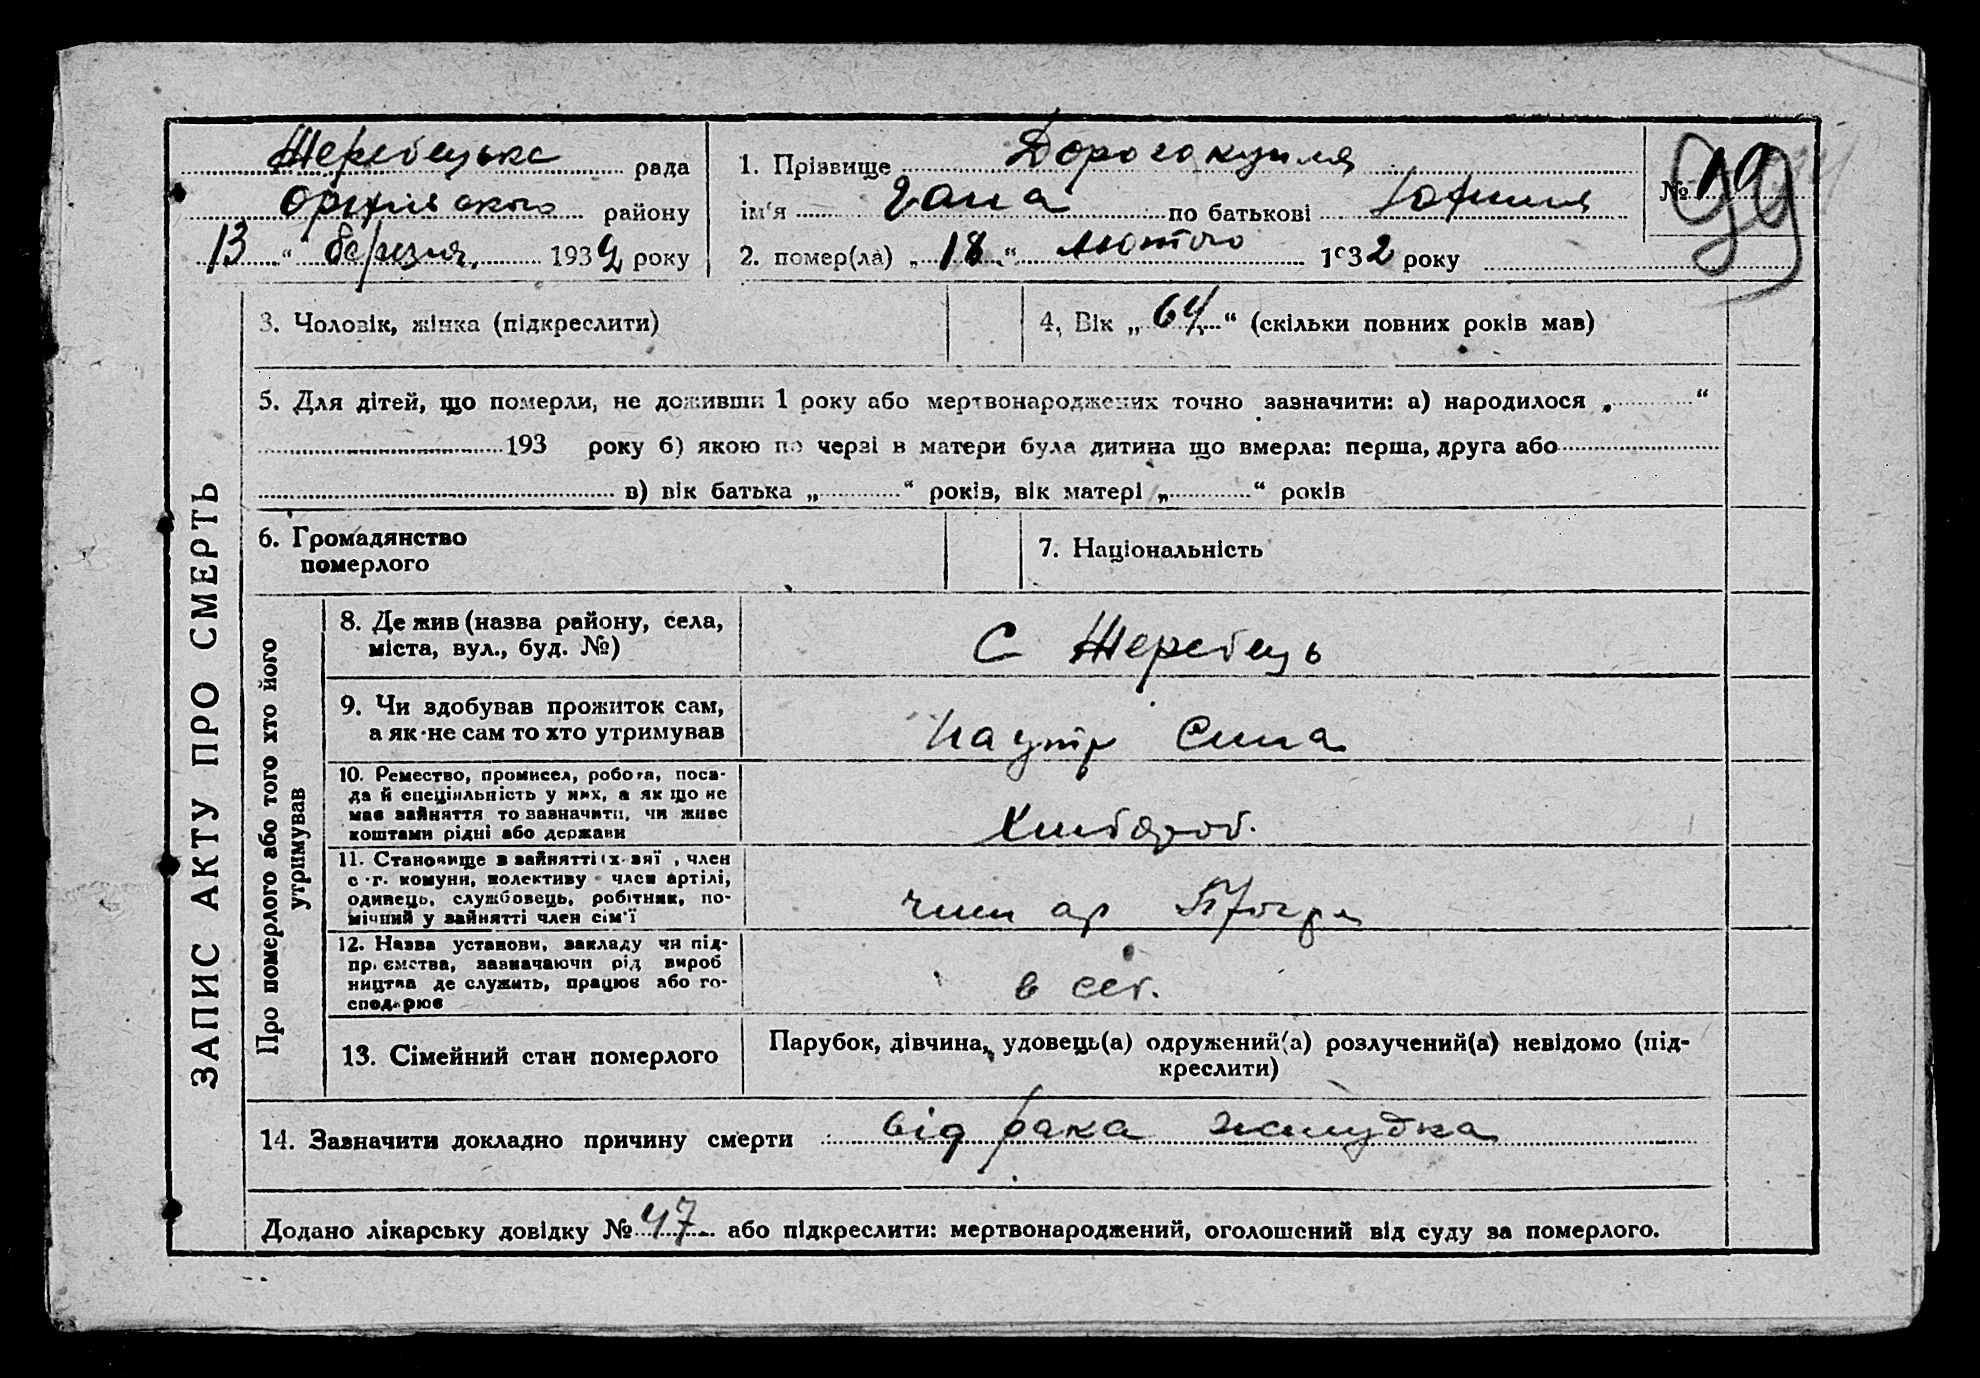 Жеребецька рада
Оріхівського району
13 " березня 1932 року
1. Прізвище Дорогокупля
ім'я Гана по батькові
2. помер(ла) „ 18 “ лютого 1932 року
№ 19
99
3. Чоловік, жінка (підкреслити)
4, Вік „ 64 “ (скільки повних років мав)
5. Для дітей, що померли, не доживши 1 року або мертвонароджених точно зазначити: а) народилося „ “
193 року б) якою по черзі в матери була дитина що вмерла: перша, друга або
в) вік батька „ “ років, вік матері „ “ років
6. Громадянство
померлого
7. Національність
ЗАПИС АКТУ ПРО СМЕРТЬ
Про померлого або того хто його
утримував
8. Де жив (назва району, села,
міста, вул., буд. №)
С Жеребець
9. Чи здобував прожиток сам,
а як не сам то хто утримував
На утр Сина
10. Ремество, промисел, робота, поса-
да й спеціяльність у них, а як що не
має зайняття то зазначити, чи живе
коштами рідні або держави
Хлібороб.
11. Становище в зайнятті їх зяї , член
с.-г. комуни, колективу член артілі,
одинець, службовець, робітник, по-
мічний у зайнятті член сім'ї
член ар
12. Назва установи, закладу чи під-
приємства, зазначаючи рід вироб
ництва де служить, працює або го-
сподарює
в сет.
13. Сімейний стан померлого
Парубок, дівчина, удовець(а) одружений(а) розлучений(а) невідомо (під-
креслити)
14. Зазначити докладно причину смерти від рака желудка
Додано лікарську довідку № 47 або підкреслити: мертвонароджений, оголошений від суду за померлого.